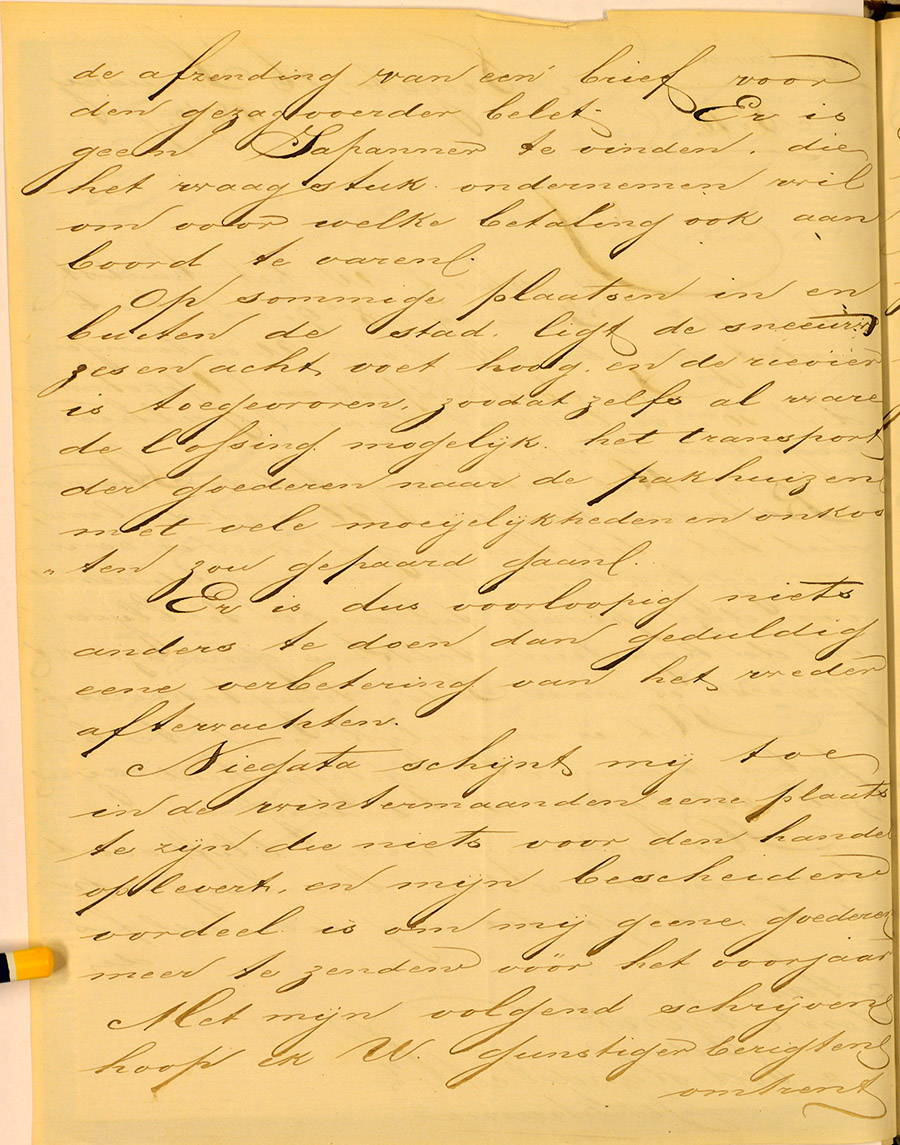 de afzending van een brief voor
den gezagvoerder belet. Er is
geen Japanner te vinden, die
het waagstuk ondernemen wil
om voor welke betaling ook aan
boord te varen.
Op sommige plaatsen in en
buiten de stad, ligt de sneeuw
zes en acht voet hoog, en de rievier
is toegevroren, zoodat zelfs al ware
de lossing mogelijk het transport
der goederen naar de pakhuizen
met vele moeijelijkheden en onkos
"ten zou gepaard gaan.
Er is dus voorloopig niets
anders te doen dan geduldig
eene verbetering van het weder
aftewachten.
Niegata schijnt mij toe
in de wintermaanden eene plaats
te zijn die niets voor den handel
oplevert, en mijn bescheiden
oordeel is om mij geene goederen
meer te zenden vóór het voorjaar
Met mijn volgend schrijven
hoop ik U. gunstiger berigten
omtrent